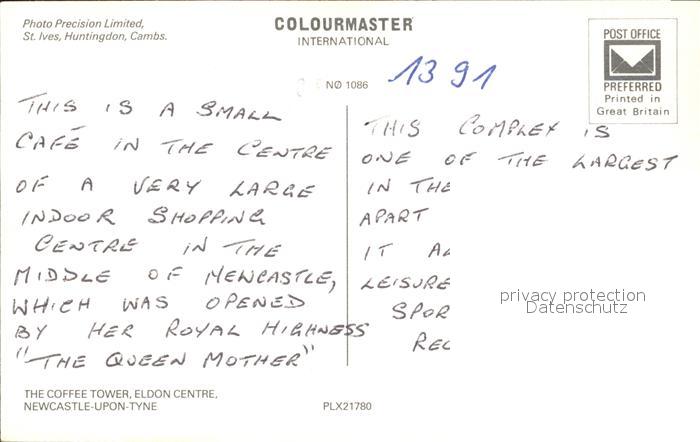 Photo Precision Limited,
St. Ives, Huntingdon, Cambs.
COLOURMASTER
INTERNATIONAL
POST OFFICE
PREFERRED
Printed in
Great Britain
NØ 1086
1391
THIS IS A SMALL
CAFÉ IN THE CENTRE
OF A VERY LARGE
INDOOR SHOPPING
CENTRE IN THE
MIDDLE OF NEWCASTLE,
WHICH WAS OPENED
BY HER ROYAL HIGHNESS
"THE QUEEN MOTHER"
THIS COMPLEX IS
ONE OF THE LARGEST
IN THE
APART
IT
LEISURE
privacy protection
Datenschutz
THE COFFEE TOWER, ELDON CENTRE,
NEWCASTLE-UPON-TYNE
PLX21780